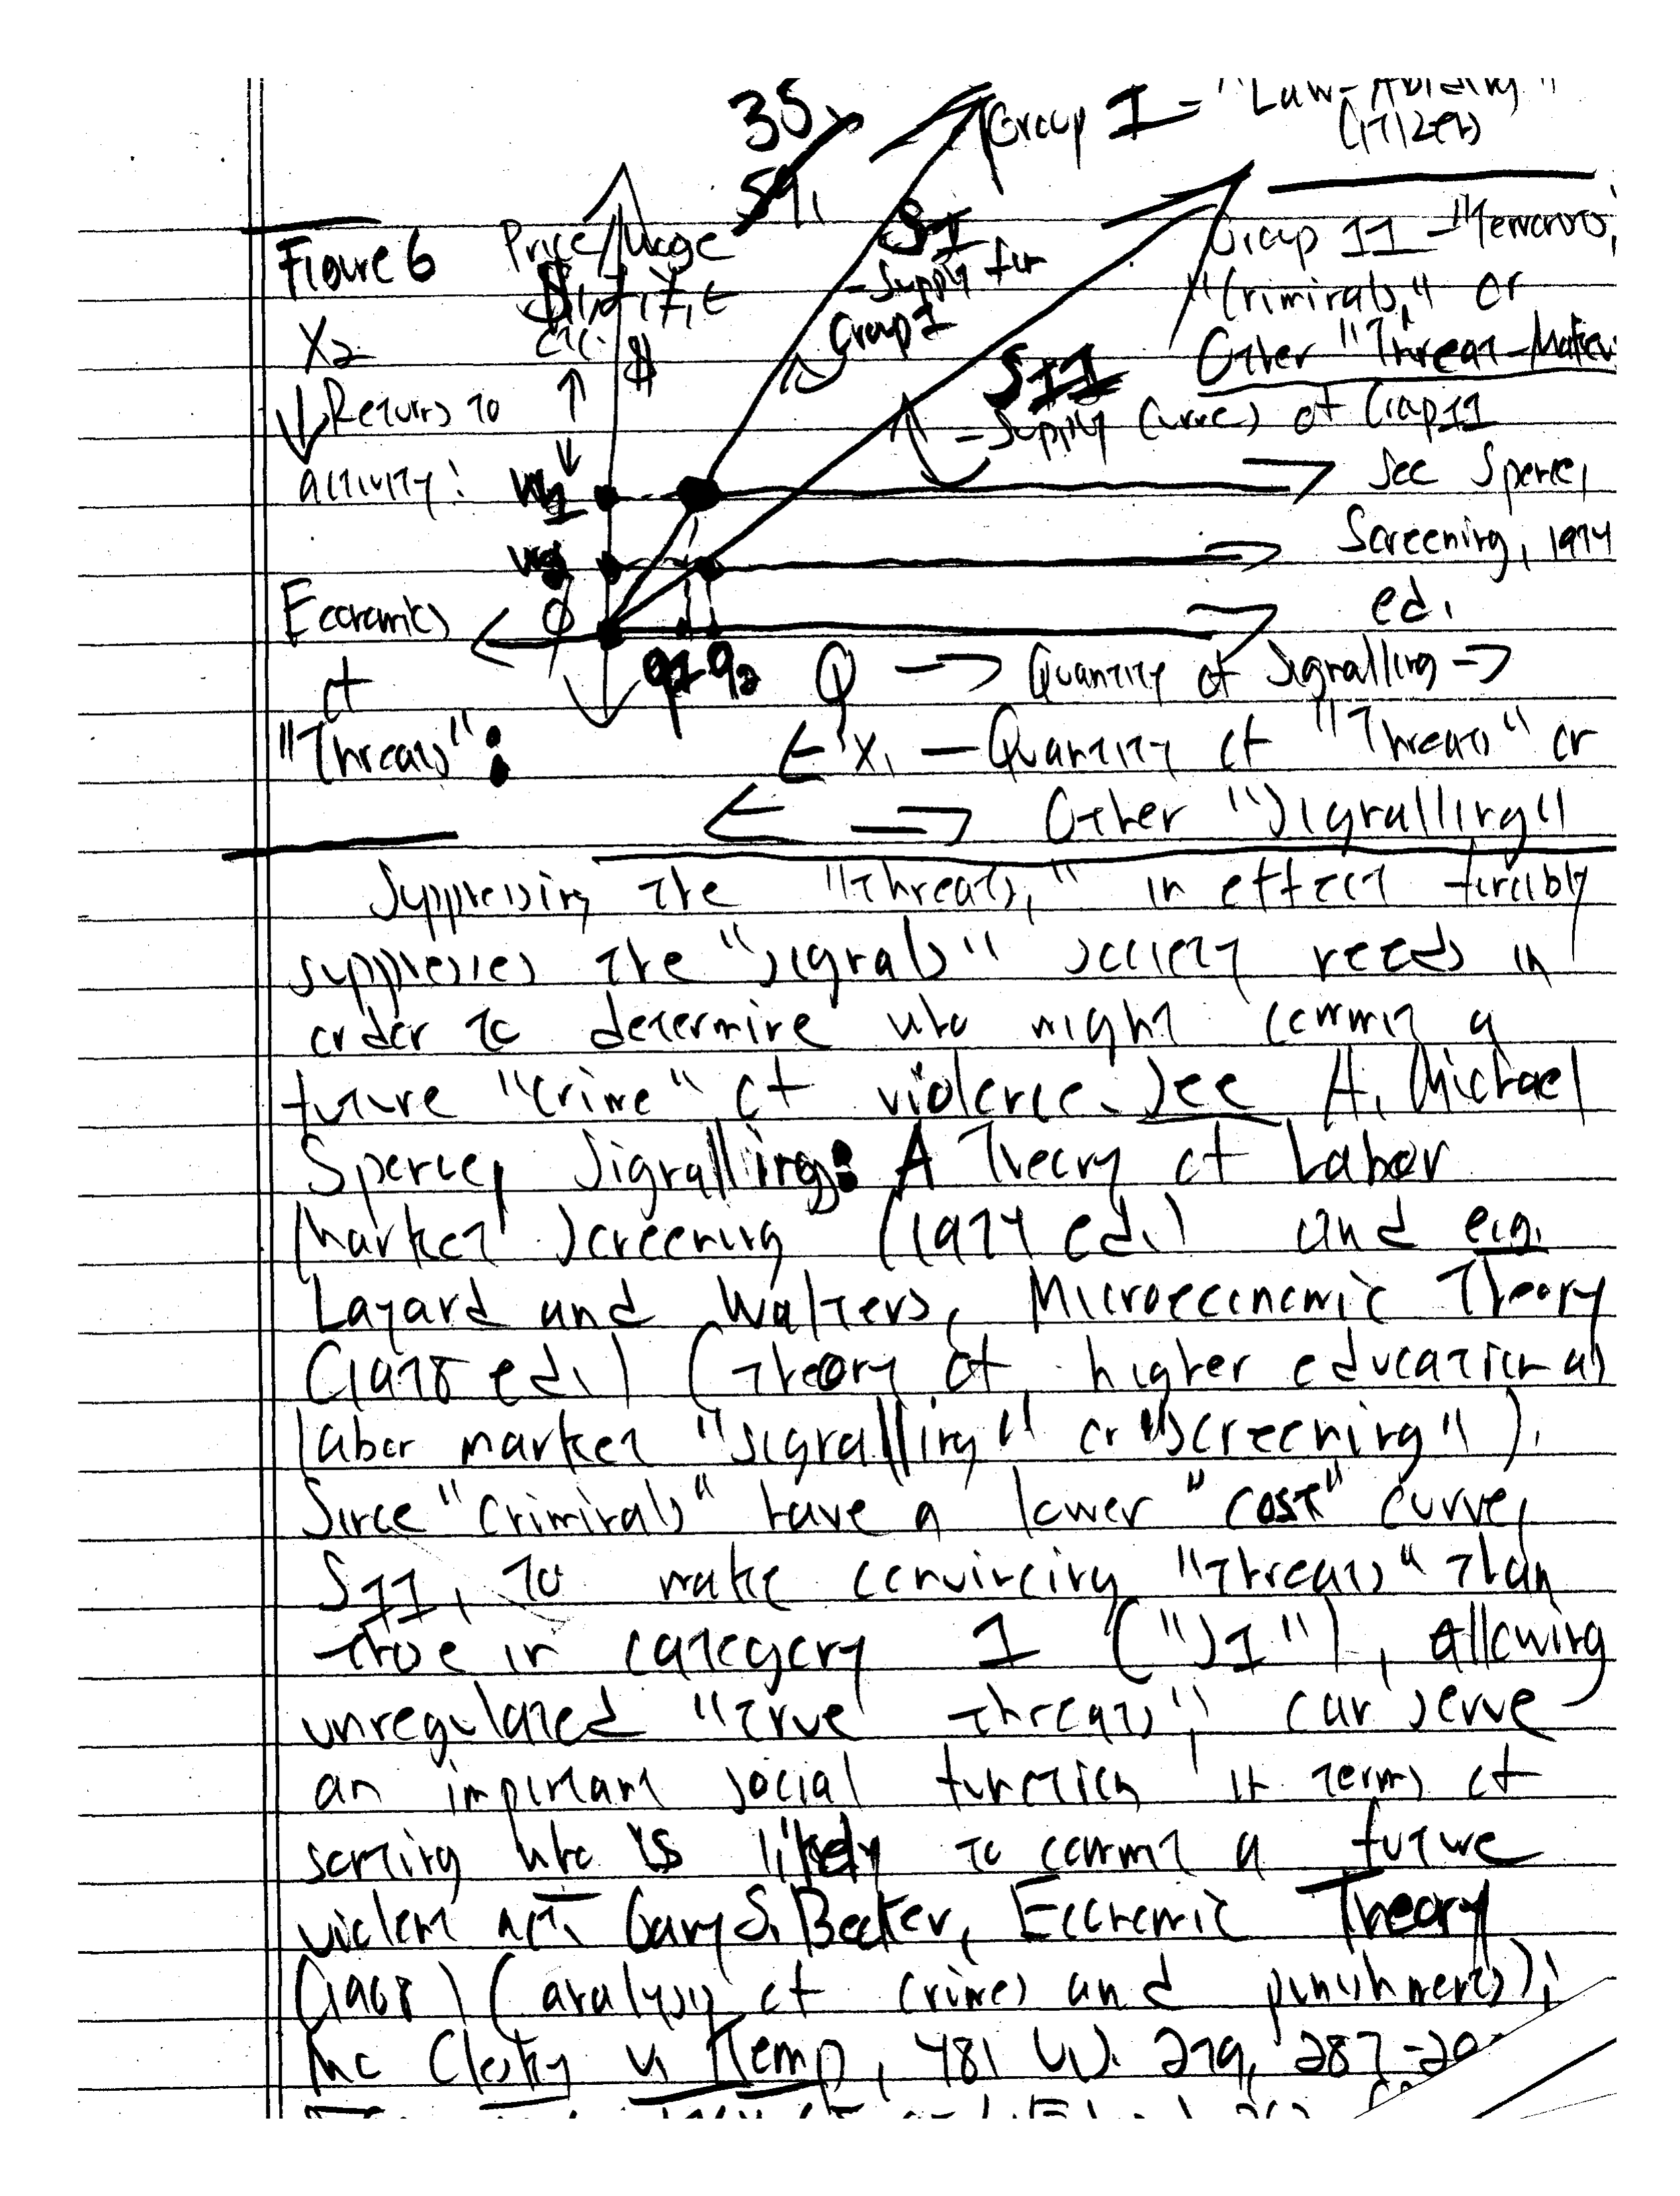 35.
59.
Group I = "Law-Abiding"
Citizen
Figure 6
Price/Wage
$
SI
- Supply for
Group I
Group II - "Terrorists,"
"Criminals," or
Other "Threat-Maker
X2
Returns to
activity:
SII
= Supply Curves of Group II
W1
See Spence,
Screening, 1974
ed.
Economics
of
"Threats":
0
q1 q2
Q → Quantity of Signalling →
X1 - Quantity of "Threats" or
Other "Signalling"
Suppressing the "threats," in effect forcibly
suppresses the "signals" society needs in
order to determine who might commit a
future "crime" of violence. See A. Michael
Spence, Signalling: A Theory of Labor
Market Screening (1974 ed.) and e.g.
Layard and Walters, Microeconomic Theory
(1978 ed.) (theory of higher education as
labor market "signalling" or "screening").
Since "criminals" have a lower "cost" curve,
SII, to make convincing "threats" than
those in category I ("SI"), allowing
unregulated "true threats", can serve
an important social function in terms of
sorting who is likely to commit a future
violent act. Gary S. Becker, Economic Theory
(1968) (analysis of crimes and punishments);
Mc Clesky v. Kemp, 481 U.S. 279, 287-29